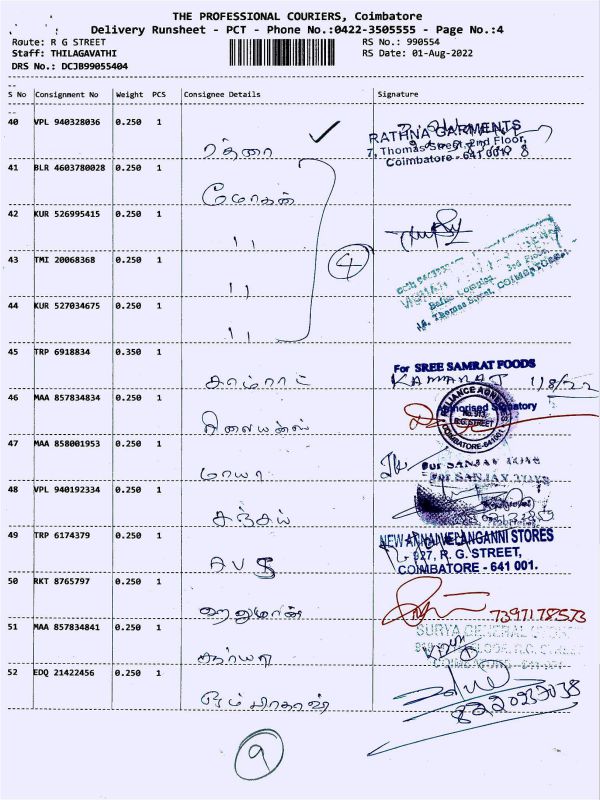 THE PROFESSIONAL COURIERS, Coimbatore
Delivery Runsheet - PCT - Phone No.:0422-3505555 - Page No.:4
Route: R G STREET RS No.: 990554
Staff: THILAGAVATHI RS Date: 01-Aug-2022
DRS No.: DCJB99055404
S No Consignment No Weight PCS Consignee Details Signature
40 VPL 940328036 0.250 1
ரத்னா
RATHNA GARMENTS
7, Thomas Street, 2nd Floor,
Coimbatore - 641 001.
41 BLR 4603780028 0.250 1
மோகன்
42 KUR 526995415 0.250 1
"
43 TMI 20068368 0.250 1
"
4
44 KUR 527034675 0.250 1
"
45 TRP 6918834 0.350 1
சாம்ராட்
For SREE SAMRAT FOODS
KAMARAJ 1/8/22
Authorised Signatory
46 MAA 857834834 0.250 1
ரிலையன்ஸ்
RELIANCE AGENCIES
R.G. STREET
COIMBATORE-641001
47 MAA 858001953 0.250 1
மாயா
For SANJAY TOYS
For SANJAY TOYS
48 VPL 940192334 0.250 1
சஞ்சய்
49 TRP 6174379 0.250 1
AVS
NEW ANNAI VELANGANNI STORES
927, R. G. STREET,
COIMBATORE - 641 001.
50 RKT 8765797 0.250 1
ஹனுமான்
7397178573
51 MAA 857834841 0.250 1
சூர்யா
SURYA GENERAL
COIMBATORE - 641 001
52 EDQ 21422456 0.250 1
ஓம் பிரகாஷ்
9